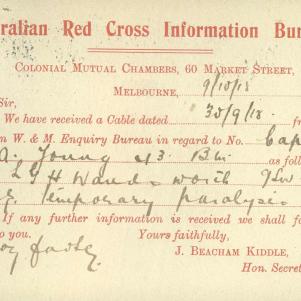 ralian Red Cross Information Bur
Colonial Mutual Chambers, 60 Market Street,
Melbourne, 9/10/18
Sir,
We have received a Cable dated 30/9/18. fr
n W. & M. Enquiry Bureau in regard to No. Cap
Young 43 Bn. as follo
L G H Wandsworth GSW
temporary paralysis
If any further information is received we shall fo
to you. Yours faithfully,
J. BEACHAM KIDDLE,
Hon. Secret